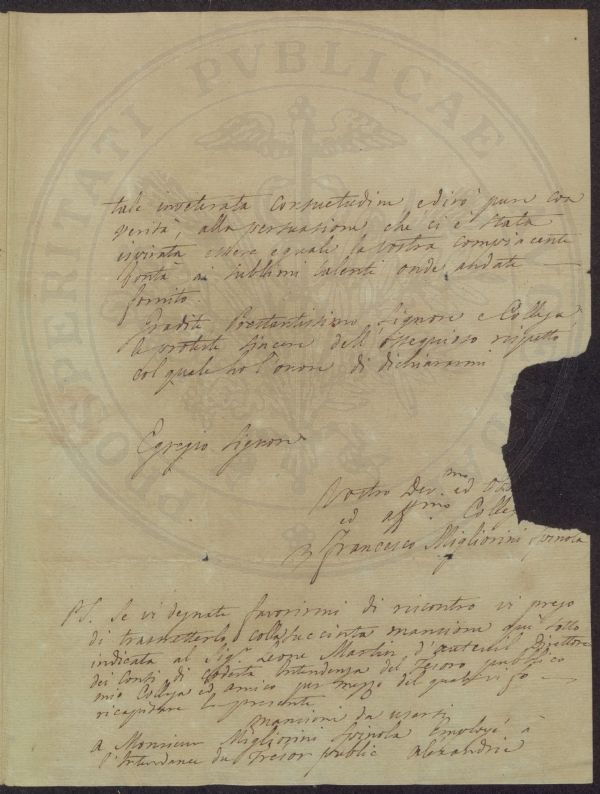 tale inveterata consuetudine e dirò pure con
verità, alla persuasione che ci è stata
ispirata essere eguale la vostra compiacente
bontà ai sublimi talenti, onde andate
fornito.
Gradite Prestantissimo Signore e Collega
le proteste sincere dell'ossequioso rispetto
col quale ho l'onore di dichiararmi
Egregio Signore
Vostro Dev.mo ed
ed aff.mo Colle
Francesco Migliorini Spinola
PS. Se vi degnate favorirmi di riscontro vi prego
di trasmetterlo colla succinta mansione qui sotto
indicata al Sig.r Leone Martin d'Auteuil Direttore
dei Conti di codesta Intendenza del Tesoro pubblico
mio Collega ed amico per mezzo del quale
ricapitare la presente
mansioni da usarsi
a Monsieur Migliorini Spinola Employé à
l'Intendance du Tresor public Alexandrie